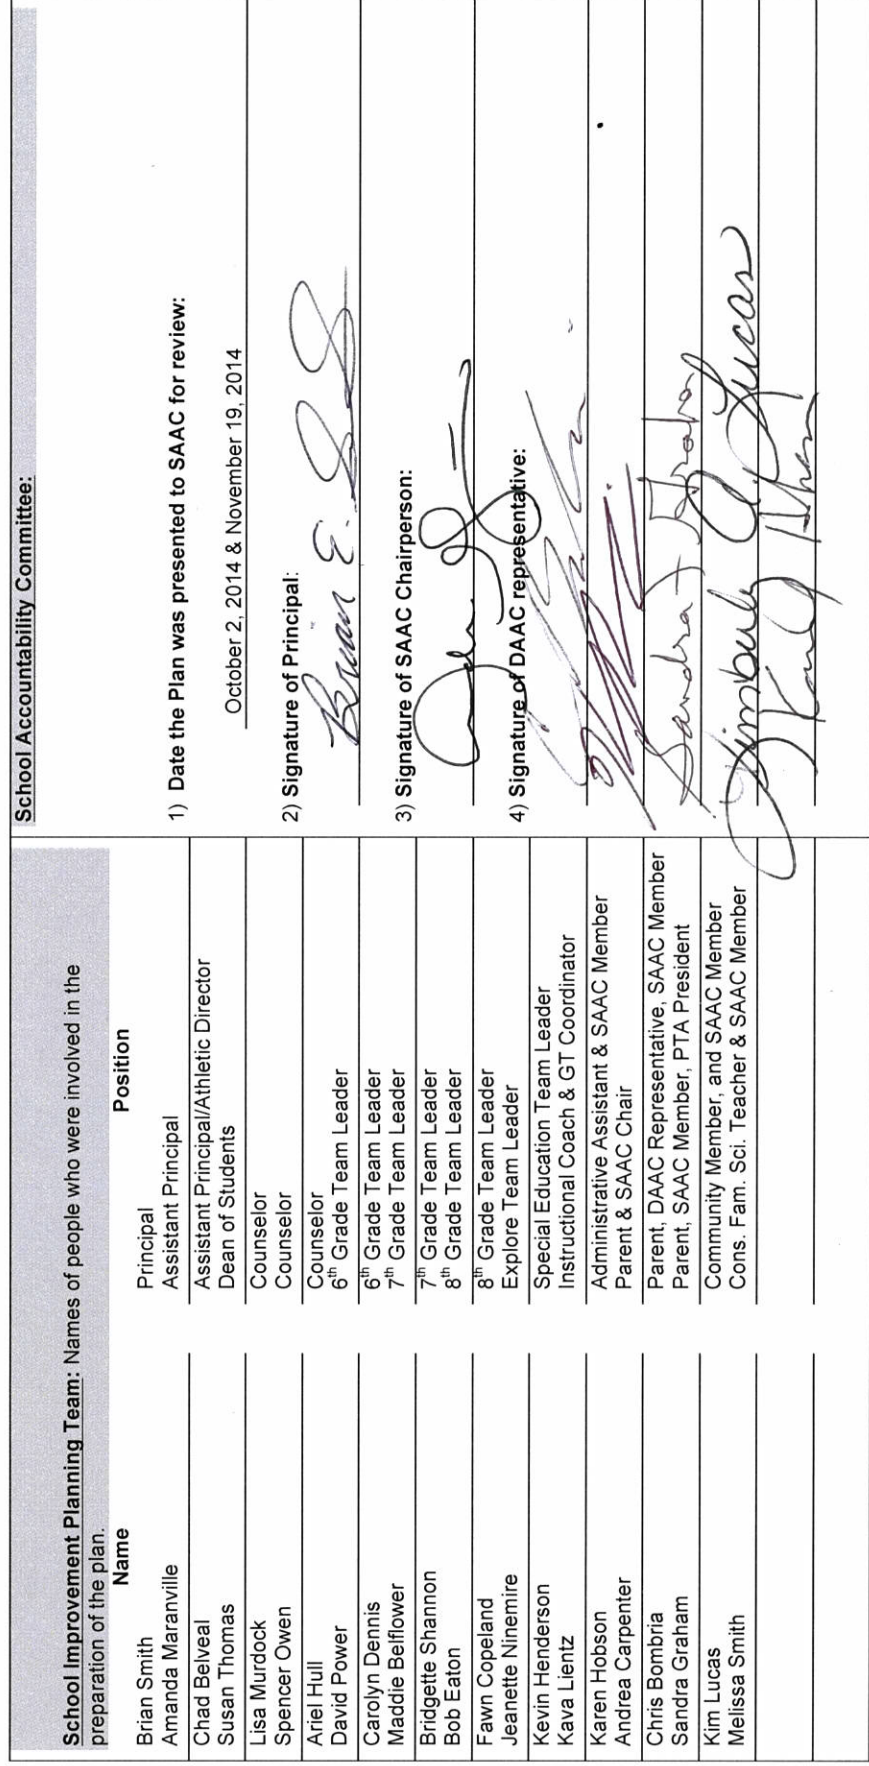 School Improvement Planning Team: Names of people who were involved in the
preparation of the plan.
Name Position
Brian Smith Principal
Amanda Maranville Assistant Principal
Chad Belveal Assistant Principal/Athletic Director
Susan Thomas Dean of Students
Lisa Murdock Counselor
Spencer Owen Counselor
Ariel Hull Counselor
David Power 6th Grade Team Leader
Carolyn Dennis 6th Grade Team Leader
Maddie Belflower 7th Grade Team Leader
Bridgette Shannon 7th Grade Team Leader
Bob Eaton 8th Grade Team Leader
Fawn Copeland 8th Grade Team Leader
Jeanette Ninemire Explore Team Leader
Kevin Henderson Special Education Team Leader
Kava Lientz Instructional Coach & GT Coordinator
Karen Hobson Administrative Assistant & SAAC Member
Andrea Carpenter Parent & SAAC Chair
Chris Bombria Parent, DAAC Representative, SAAC Member
Sandra Graham Parent, SAAC Member, PTA President
Kim Lucas Community Member, and SAAC Member
Melissa Smith Cons. Fam. Sci. Teacher & SAAC Member
School Accountability Committee:
1) Date the Plan was presented to SAAC for review:
October 2, 2014 & November 19, 2014
2) Signature of Principal:
Brian E.
3) Signature of SAAC Chairperson:
4) Signature of DAAC representative:
Sandra J Graham
Kimberly A Lucas